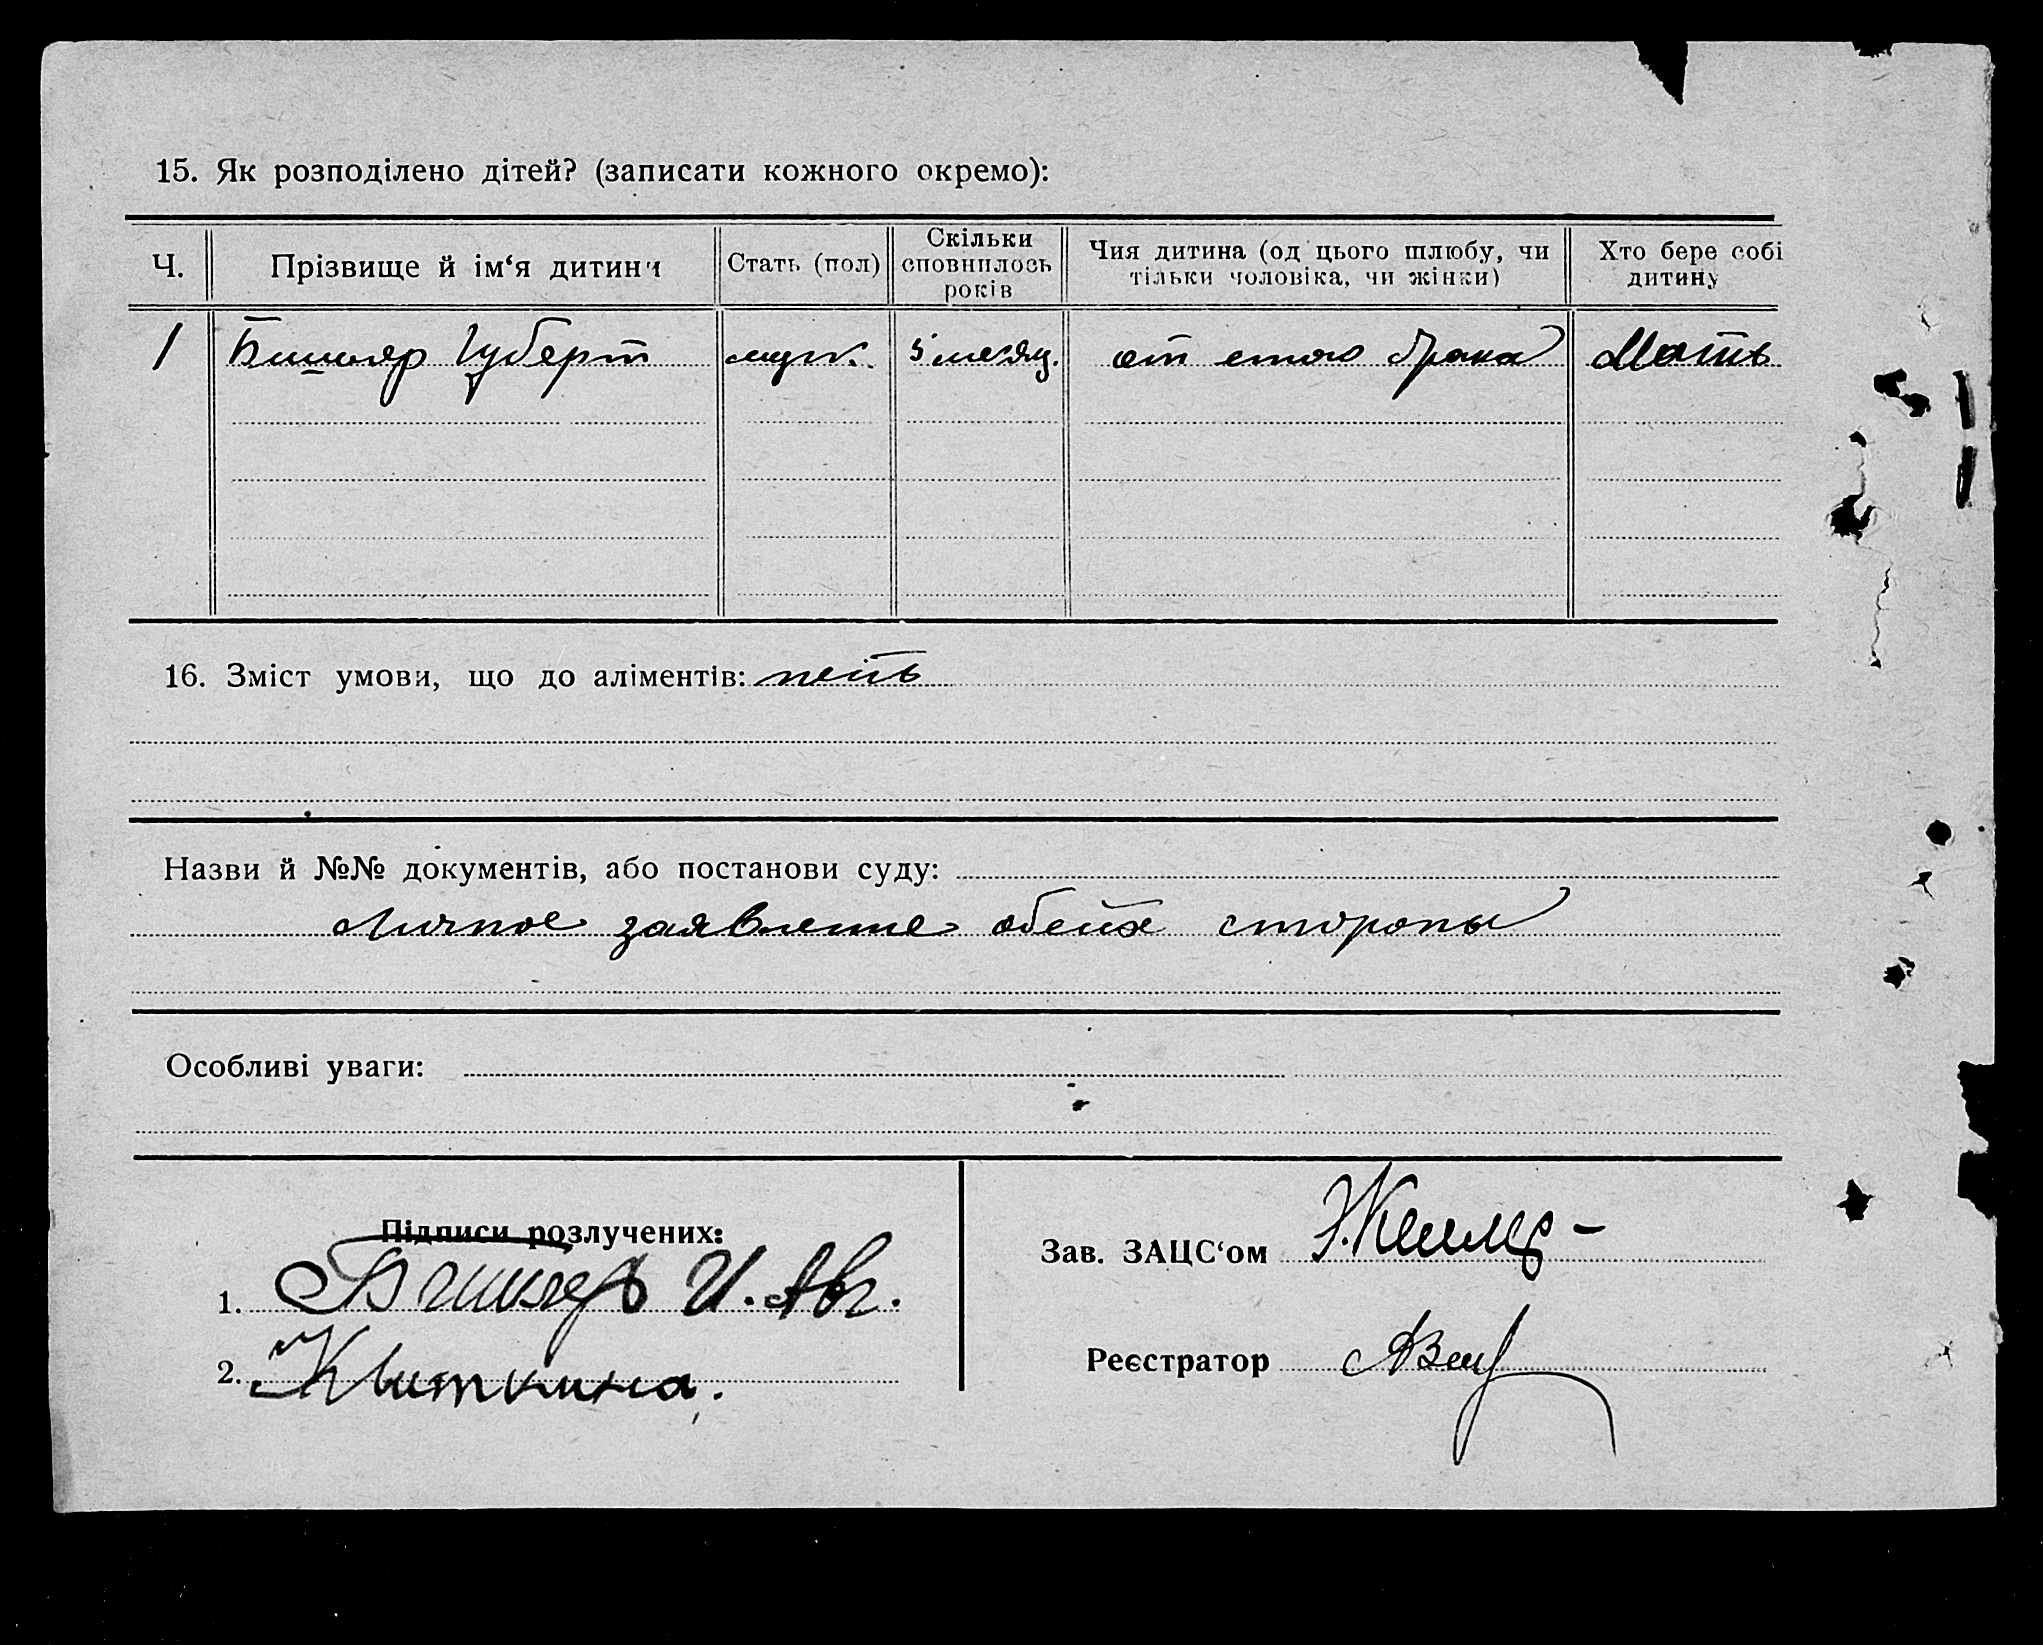 15. Як розподілено дітей? (записати кожного окремо):
Ч. Прізвище й ім‘я дитини Стать (пол) Скільки сповнилось років Чия дитина (од цього шлюбу, чи тільки чоловіка, чи жінки) Хто бере собі дитину
1 Бишляр Губерт муж. 5 месяц. от етого брака Мать
16. Зміст умови, що до аліментів: нетъ
Назви й №№ документів, або постанови суду:
Личное заявление обеих стороны
Особливі уваги:
Підписи розлучених:
1. И. Авг.
2. Квиткина.
Зав. ЗАЦС‘ом
Реєстратор